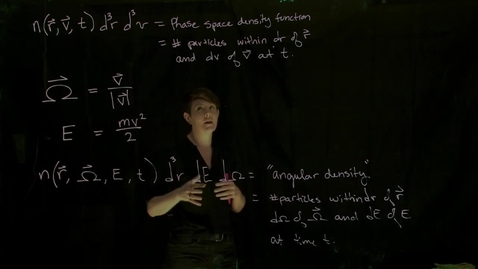 n(r⃗, v⃗, t) d³r d³v = Phase space density function
= # particles within dr of r⃗
and dv of v⃗ at t.
Ω⃗ = v⃗ / |v⃗|
E = mv² / 2
n(r⃗, Ω⃗, E, t) d³r dE dΩ = "angular density"
= # particles within dr of r⃗
dΩ of Ω⃗ and dE of E
at time t.